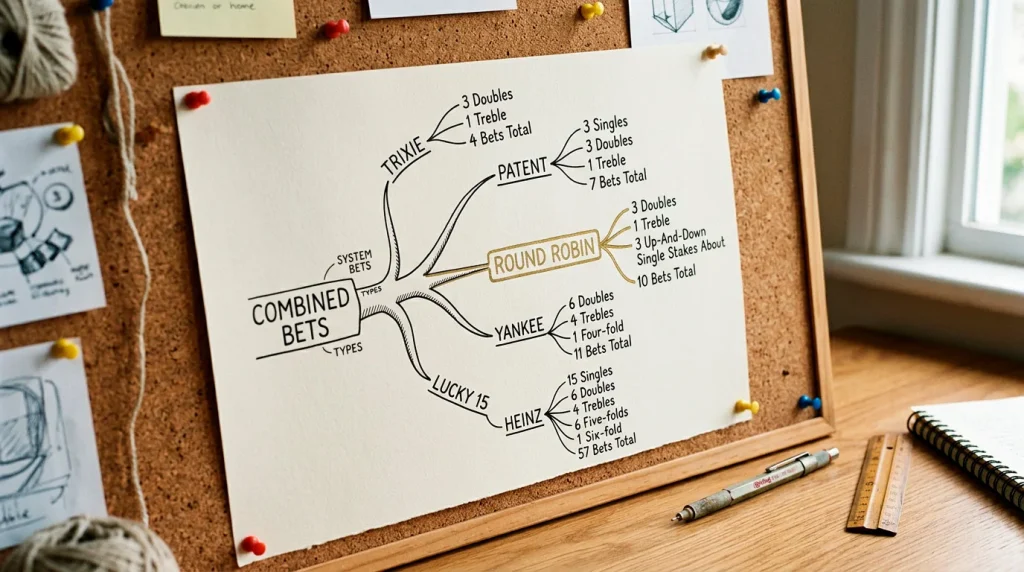 Chosen or home
COMBINED
BETS
SYSTEM
BETS
TYPES
TYPES
TRIXIE
3 Doubles
1 Treble
4 Bets Total
PATENT
3 Singles
3 Doubles
1 Treble
7 Bets Total
ROUND ROBIN
3 Doubles
1 Treble
3 Up-And-Down
Single Stakes About
10 Bets Total
YANKEE
6 Doubles
4 Trebles
1 Four-fold
11 Bets Total
LUCKY 15
HEINZ
15 Singles
6 Doubles
4 Trebles
6 Five-folds
1 Six-fold
57 Bets Total
3